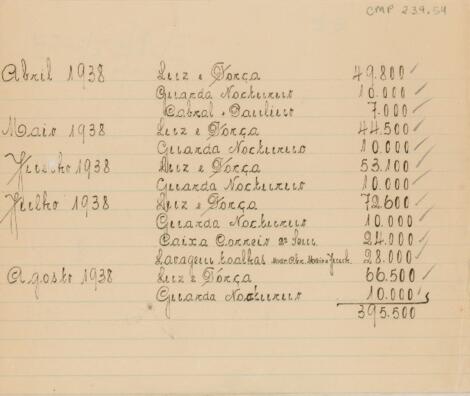 CMP 239.54
Abril 1938 Luz e Força 49.800
Guarda Nocturno 10.000
Cabral e Paulino 7.000
Maio 1938 Luz e Força 44.500
Guarda Nocturno 10.000
Junho 1938 Luz e Força 53.100
Guarda Nocturno 10.000
Julho 1938 Luz e Força 72.600
Guarda Nocturno 10.000
Caixa Correio 2º Sem. 24.000
Lavagem toalhas Mar. Abr. Maio Junh. 28.000
Agosto 1938 Luz e Força 66.500
Guarda Nocturno 10.000
395.500